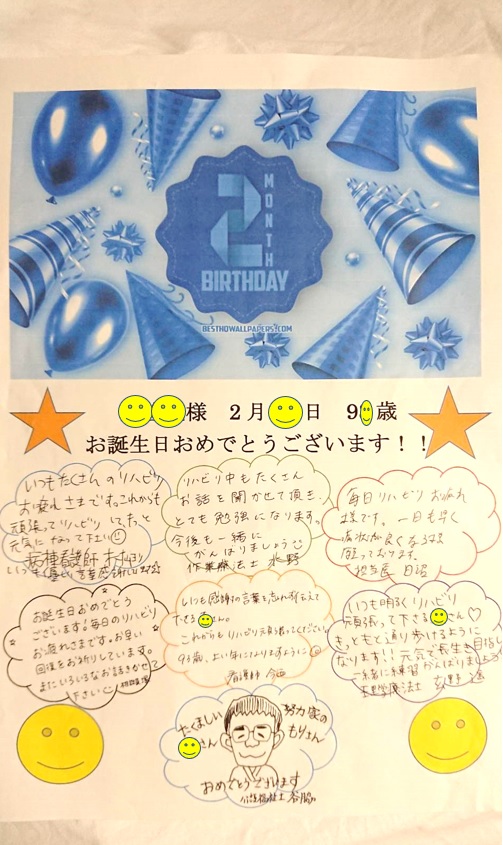 2
MONTH
BIRTHDAY
BESTHDWALLPAPERS.COM
様 2月 日 9 歳
お誕生日おめでとうございます！！
いつもたくさんのリハビリ
お疲れさまです。これからも
頑張ってリハビリして、もっと
元気になって下さい
病棟看護師
リハビリ中もたくさん
お話を聞かせて頂き、
とても勉強になります。
今後も一緒に
がんばりましょう
作業療法士 水野
毎日リハビリ お疲れ
様です。一日も早く
病状が良くなる様
願っております。
担当医 日沼
お誕生日おめでとう
ございます！毎日のリハビリ
お疲れさまです。お早い
回復をお祈りしています。
またいろいろなお話きかせて
下さい
いつも感謝の言葉も忘れず伝えて
下さる さん。
これからもリハビリ元気に頑張ってください
93歳、よい年になりますように
看護師 今西
いつも明るくリハビリ
頑張って下さる さん♡
きっともと通り歩けるように
なります!! 元気で長生き目指し
一緒に練習がんばりましょう
理学療法士
たくましい
さん
努力家の
もりさん
おめでとうございます
介護福祉士 谷脇